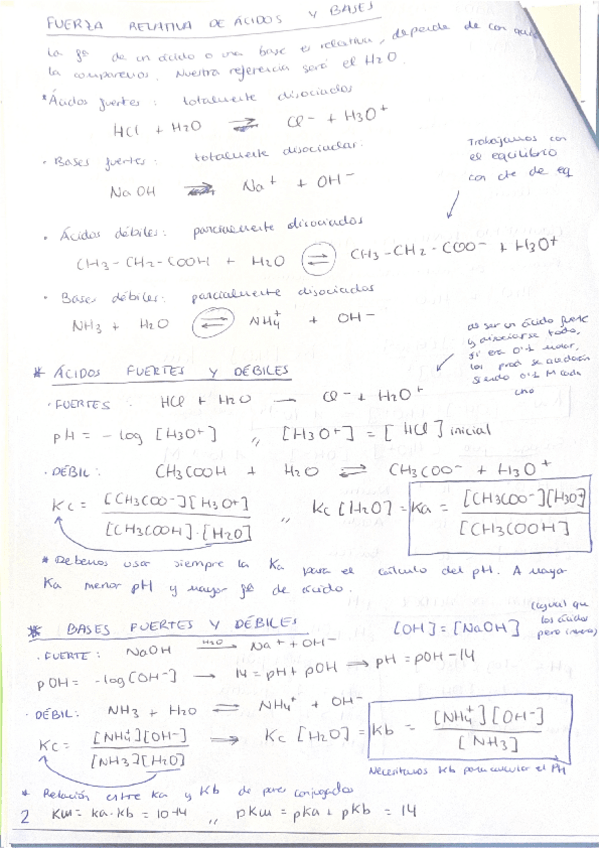 FUERZA RELATIVA DE ÁCIDOS Y BASES
La fza de un ácido o una base es relativa, depende de con quien
la comparemos. Nuestra referencia será el H2O.
* Ácidos fuertes: totalmente disociados
HCl + H2O ⇌ Cl- + H3O+
· Bases fuertes: totalmente disociadas.
NaOH → Na+ + OH-
Trabajamos con
el equilibrio
con cte de eq
· Ácidos débiles: parcialmente disociados
CH3-CH2-COOH + H2O ⇌ CH3-CH2-COO- + H3O+
· Bases débiles: parcialmente disociados
NH3 + H2O ⇌ NH4+ + OH-
al ser un ácido fuerte
y disociarse todo,
si era 0'1 molar,
los prod se quedarán
siendo 0'1 M cada
uno
* ÁCIDOS FUERTES Y DÉBILES
· FUERTES: HCl + H2O → Cl- + H2O+
pH = -log [H3O+] ,, [H3O+] = [HCl] inicial
· DÉBIL: CH3COOH + H2O ⇌ CH3COO- + H3O+
Kc = [CH3COO-][H3O+] / [CH3COOH]·[H2O] ,, Kc [H2O] = Ka = [CH3COO-][H3O+] / [CH3COOH]
* Debemos usar siempre la Ka para el cálculo del pH. A mayor
Ka menor pH y mayor fza de ácido.
* BASES FUERTES Y DÉBILES
[OH] = [NaOH] (igual que
los ácidos
pero inverso)
· FUERTE: NaOH H2O→ Na+ + OH-
pOH = -log[OH-] → 14 = pH + pOH → pH = pOH - 14
· DÉBIL: NH3 + H2O ⇌ NH4+ + OH-
Kc = [NH4+][OH-] / [NH3][H2O] → Kc [H2O] = Kb = [NH4+][OH-] / [NH3]
Necesitamos Kb para calcular el PH
* Relación entre Ka y Kb de pares conjugados
2 Kw = Ka·Kb = 10-14 ,, pKw = pKa + pKb = 14